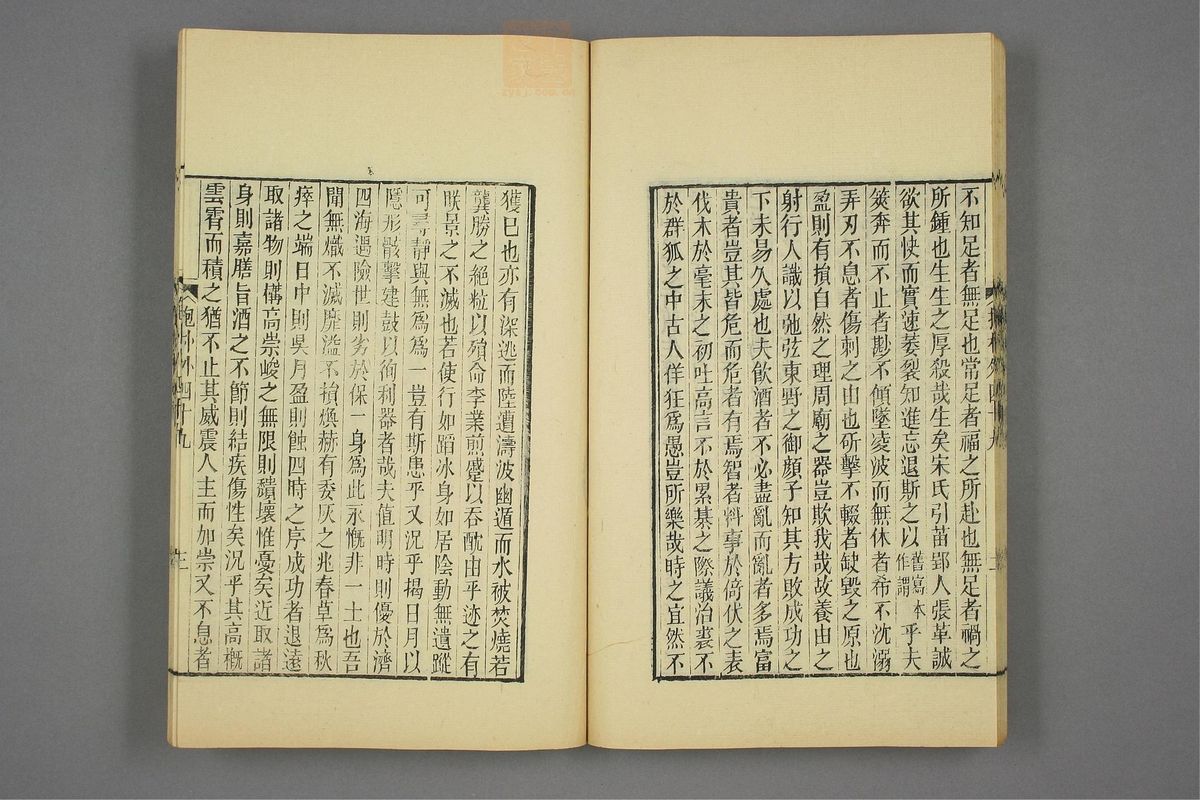 不知足者無足也常足者福之所赴也無足者禍之
所鍾也生生之厚殺哉生矣宋氏引苗郢人張革誠
欲其快而實速萎裂知進忘退斯之以舊寫本作謂乎夫
筴奔而不止者尠不傾墜凌波而無休者希不沈溺
弄刃不息者傷刺之由也斫擊不輟者缺毀之原也
盈則有損自然之理周廟之器豈欺我哉故養由之
射行人識以弛弦東野之御顏子知其方敗成功之
下未易久處也夫飲酒者不必盡亂而亂者多焉富
貴者豈其皆危而危者有焉智者料事於倚伏之表
伐木於毫末之初吐高言不於累棊之際議治裘不
於群狐之中古人佯狂爲愚豈所樂哉時之宜然不
獲已也亦有深逃而陸遭濤波幽遁而水被焚燒若
龔勝之絕粒以殞命李業煎蹙以吞酖由乎迹之有
眹景之不滅也若使行如蹈冰身如居陰動無遺蹤
可尋靜與無爲爲一豈有斯患乎又況乎揭日月以
隱形骸擊建鼓以徇利器者哉夫值明時則優於濟
四海遇險世則劣於保一身爲此永慨非一士也吾
聞無熾不滅靡溢不損煥赫有委灰之兆春草爲秋
瘁之端日中則昃月盈則蝕四時之序成功者退遠
取諸物則構高崇峻之無限則穨壞惟憂矣近取諸
身則嘉膳旨酒之不節則結疾傷性矣況乎其高概
雲霄而積之猶不止其威震人主而加崇又不息者
抱朴外四十九
三